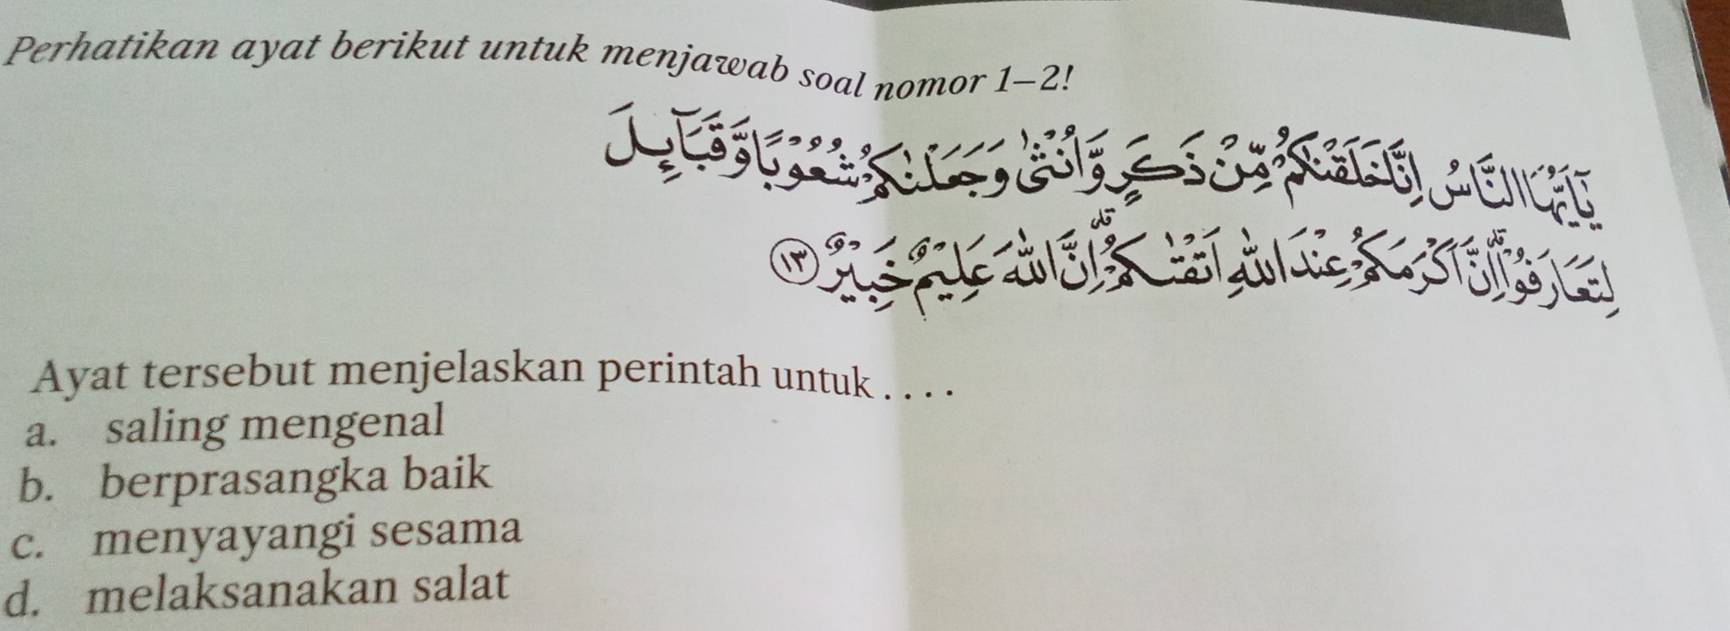 Perhatikan ayat berikut untuk menjawab soal nomor 1–2!
يٰٓاَيُّهَا النَّاسُ اِنَّا خَلَقْنٰكُمْ مِّنْ ذَكَرٍ وَّاُنْثٰى وَجَعَلْنٰكُمْ شُعُوْبًا وَّقَبَاۤىِٕلَ
لِتَعَارَفُوْاۚ اِنَّ اَكْرَمَكُمْ عِنْدَ اللّٰهِ اَتْقٰىكُمْۗ اِنَّ اللّٰهَ عَلِيْمٌ خَبِيْرٌ ١٣
Ayat tersebut menjelaskan perintah untuk . . . .
a. saling mengenal
b. berprasangka baik
c. menyayangi sesama
d. melaksanakan salat